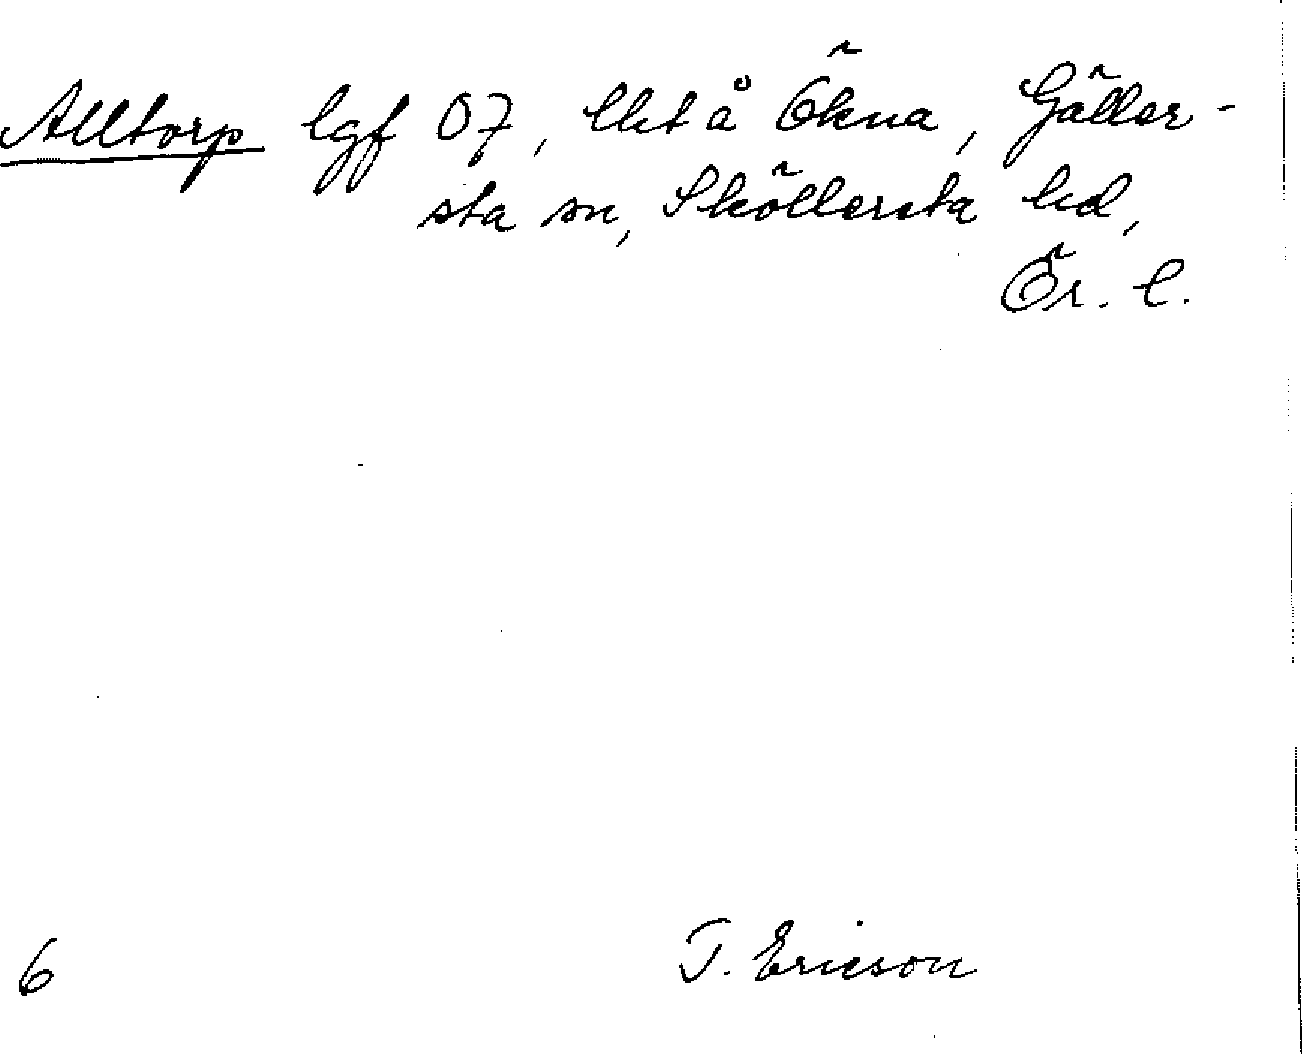 Alltorp lgf 07, lht å Ökna, Gäller-
sta sn, Sköllersta hd,
Ör. l.
6
T. Ericson